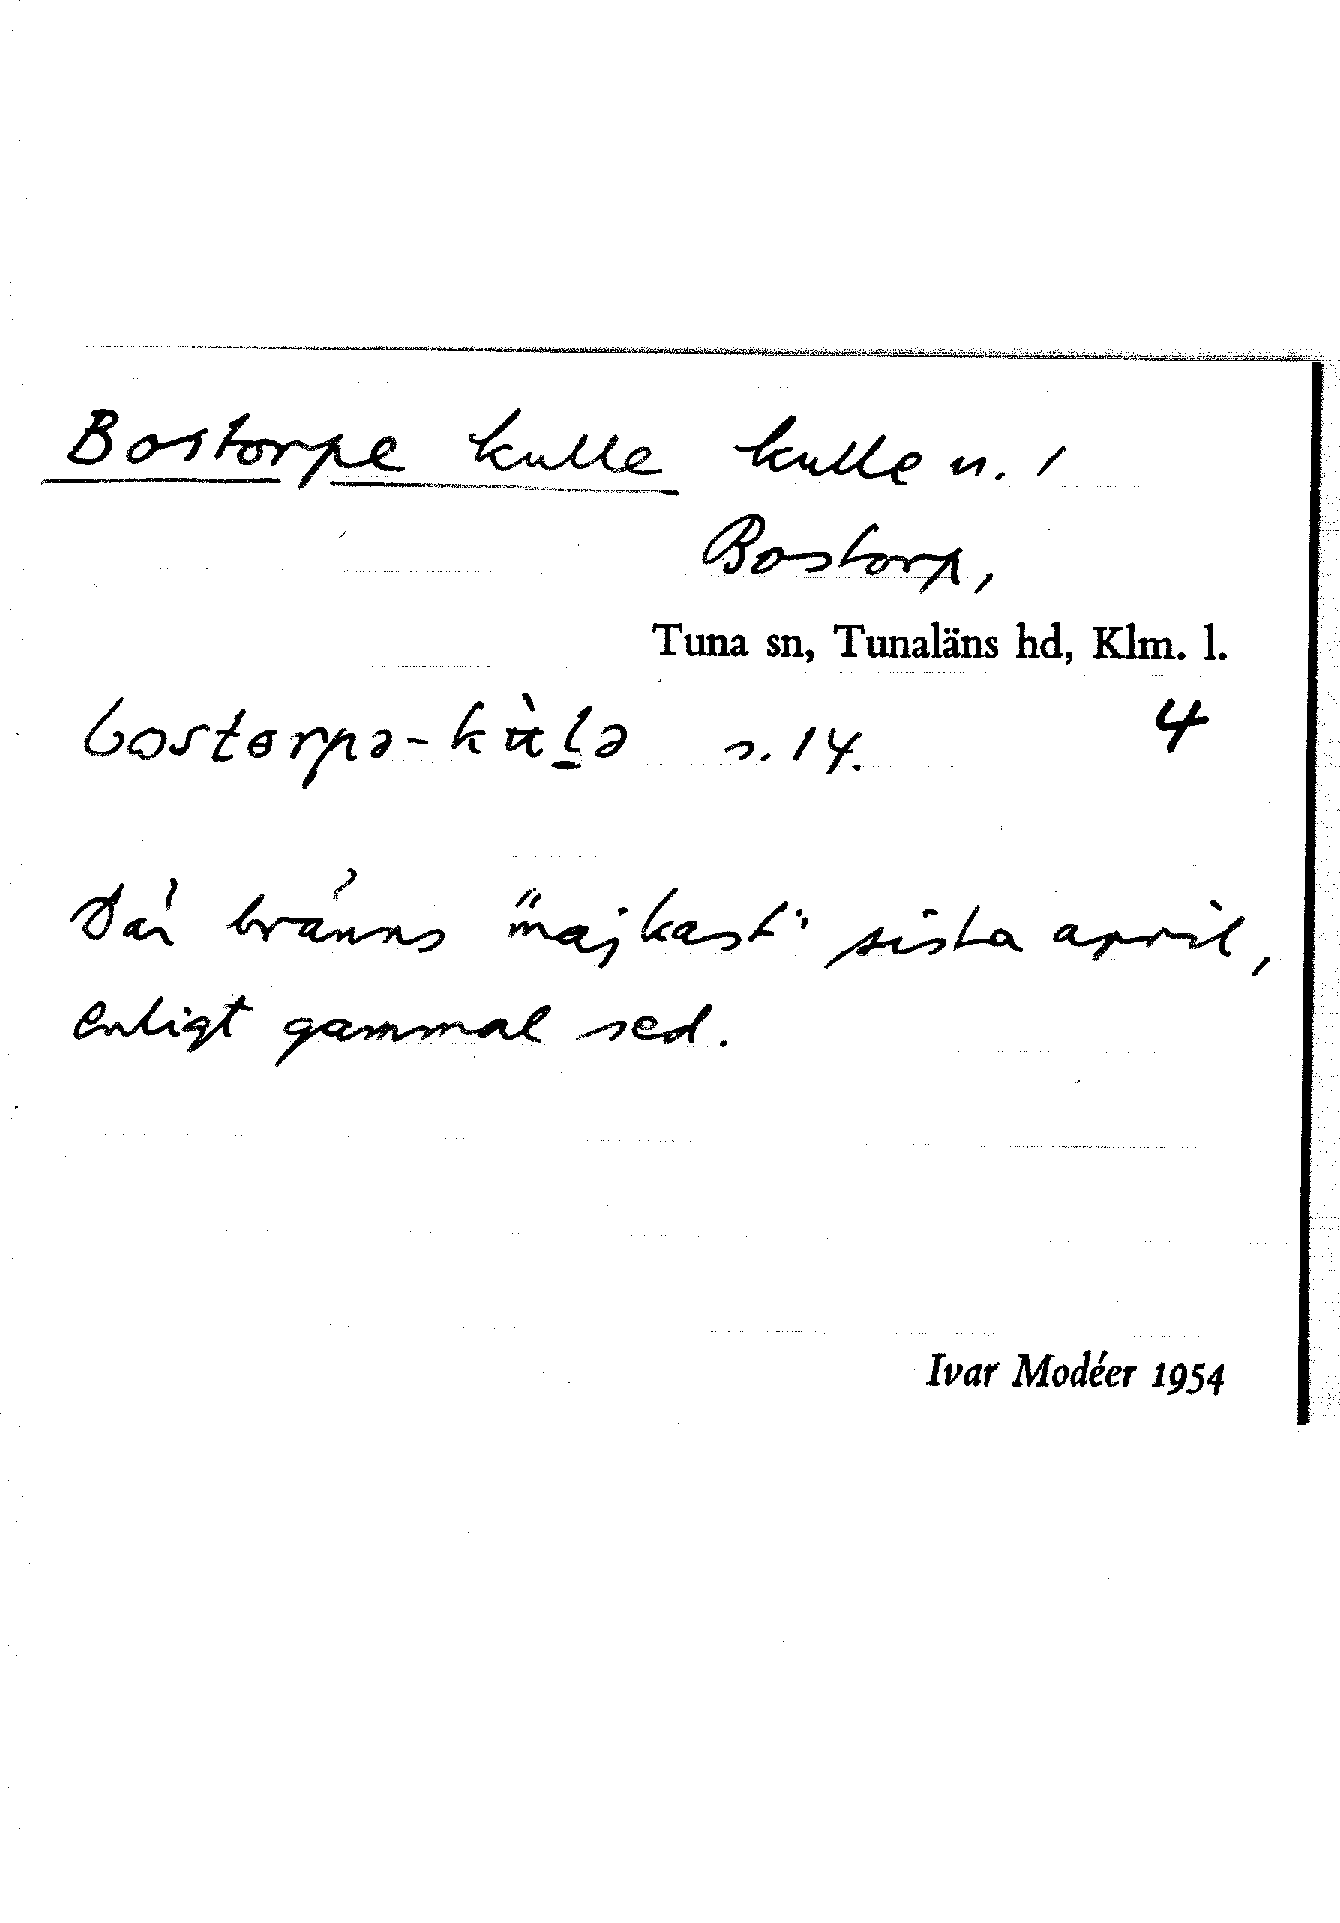 Bostorpe kulle kulle n. 1
Bostorp,
Tuna sn, Tunaläns hd, Klm. l.
bostɵrpə-kùlə s. 14. 4
Där bränns "majkast" sista april,
enligt gammal sed.
Ivar Modéer 1954